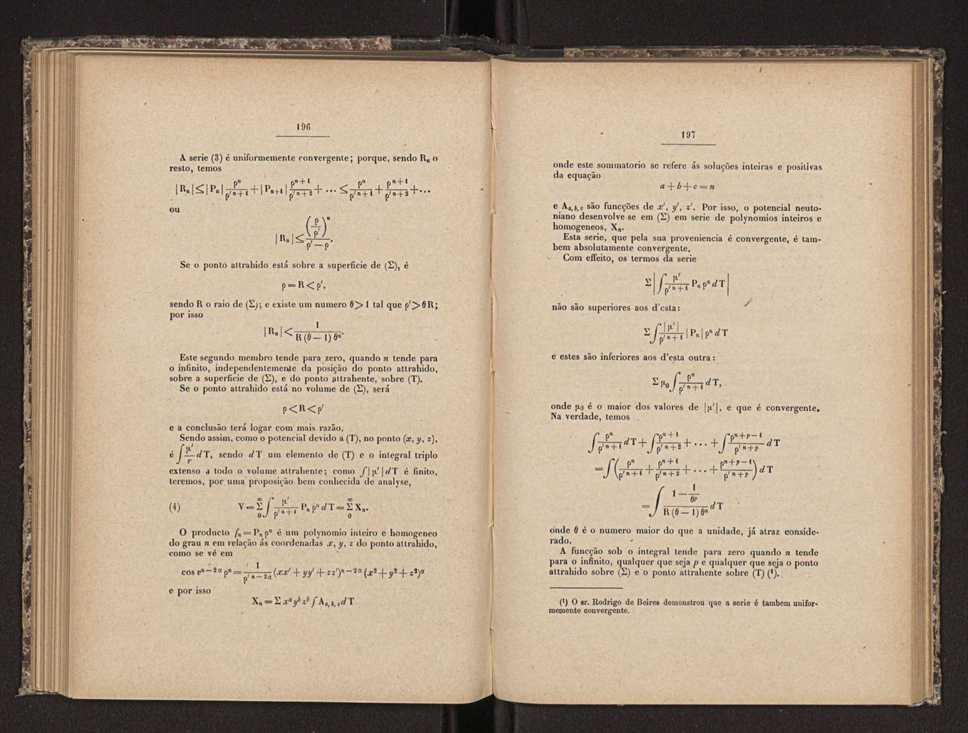 196
A serie (3) é uniformemente convergente; porque, sendo Rₙ o
resto, temos
|Rₙ| ≤ |Pₙ| ρⁿ/ρ'ⁿ⁺¹ + |Pₙ₊₁| ρⁿ⁺¹/ρ'ⁿ⁺² + ... ≤ ρⁿ/ρ'ⁿ⁺¹ + ρⁿ⁺¹/ρ'ⁿ⁺² + ...
ou
|Rₙ| ≤ (ρ/ρ')ⁿ/(ρ' — ρ).
Se o ponto attrahido está sobre a superficie de (Σ), é
ρ = R < ρ',
sendo R o raio de (Σ); e existe um numero θ > 1 tal que ρ' > θR;
por isso
|Rₙ| < 1/(R (θ — 1) θⁿ).
Este segundo membro tende para zero, quando n tende para
o infinito, independentemente da posição do ponto attrahido,
sobre a superficie de (Σ), e do ponto attrahente, sobre (T).
Se o ponto attrahido está no volume de (Σ), será
ρ < R < ρ'
e a conclusão terá logar com mais razão.
Sendo assim, como o potencial devido a (T), no ponto (x, y, z),
é ∫ μ'/r dT, sendo dT um elemento de (T) e o integral triplo
extenso a todo o volume attrahente; como ∫|μ'|dT é finito,
teremos, por uma proposição bem conhecida de analyse,
(4) V = Σ₀^∞ ∫ μ'/ρ'ⁿ⁺¹ Pₙ ρⁿ dT = Σ₀^∞ Xₙ.
O producto fₙ = Pₙ ρⁿ é um polynomio inteiro e homogeneo
do grau n em relação ás coordenadas x, y, z do ponto attrahido,
como se vé em
cos vⁿ⁻²ᵅ ρⁿ = 1/ρ'ⁿ⁻²ᵅ (xx' + yy' + zz')ⁿ⁻²ᵅ (x² + y² + z²)ᵅ
e por isso
Xₙ = Σ xᵃ yᵇ zᶜ ∫ A_{a, b, c} dT
197
onde este sommatorio se refere ás soluções inteiras e positivas
da equação
a + b + c = n
e A_{a, b, c} são funcções de x', y', z'. Por isso, o potencial neuto-
niano desenvolve-se em (Σ) em serie de polynomios inteiros e
homogeneos, Xₙ.
Esta serie, que pela sua proveniencia é convergente, é tam-
bem absolutamente convergente.
Com effeito, os termos da serie
Σ |∫ μ'/ρ'ⁿ⁺¹ Pₙ ρⁿ dT|
não são superiores aos d'esta:
Σ ∫ |μ'|/ρ'ⁿ⁺¹ |Pₙ| ρⁿ dT
e estes são inferiores aos d'esta outra:
Σ μ₀ ∫ ρⁿ/ρ'ⁿ⁺¹ dT,
onde μ₀ é o maior dos valores de |μ'|, e que é convergente.
Na verdade, temos
∫ ρⁿ/ρ'ⁿ⁺¹ dT + ∫ ρⁿ⁺¹/ρ'ⁿ⁺² + ... + ∫ ρⁿ⁺ᵖ⁻¹/ρ'ⁿ⁺ᵖ dT
= ∫ (ρⁿ/ρ'ⁿ⁺¹ + ρⁿ⁺¹/ρ'ⁿ⁺² + ... + ρⁿ⁺ᵖ⁻¹/ρ'ⁿ⁺ᵖ) dT
= ∫ (1 — 1/θᵖ)/(R (θ — 1) θⁿ) dT
onde θ é o numero maior do que a unidade, já atraz conside-
rado.
A funcção sob o integral tende para zero quando n tende
para o infinito, qualquer que seja p e qualquer que seja o ponto
attrahido sobre (Σ) e o ponto attrahente sobre (T) (¹).
(¹) O sr. Rodrigo de Beires demonstrou que a serie é tambem unifor-
memente convergente.